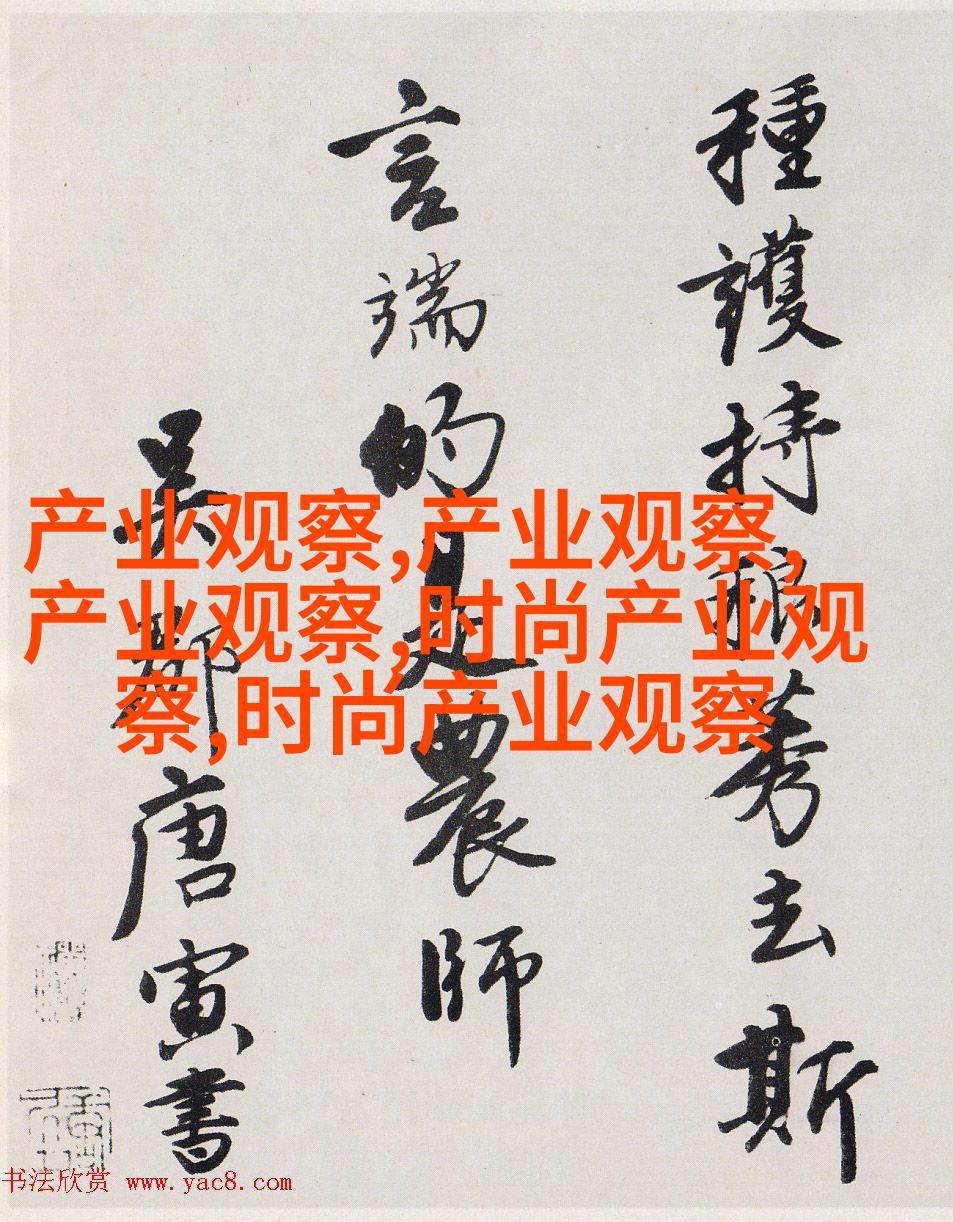 種護持稂莠去斯
言端的是農師
吳郡唐寅書
产业观察,产业观察,
产业观察,时尚产业观
察,时尚产业观察
书法欣赏 www.yac8.com